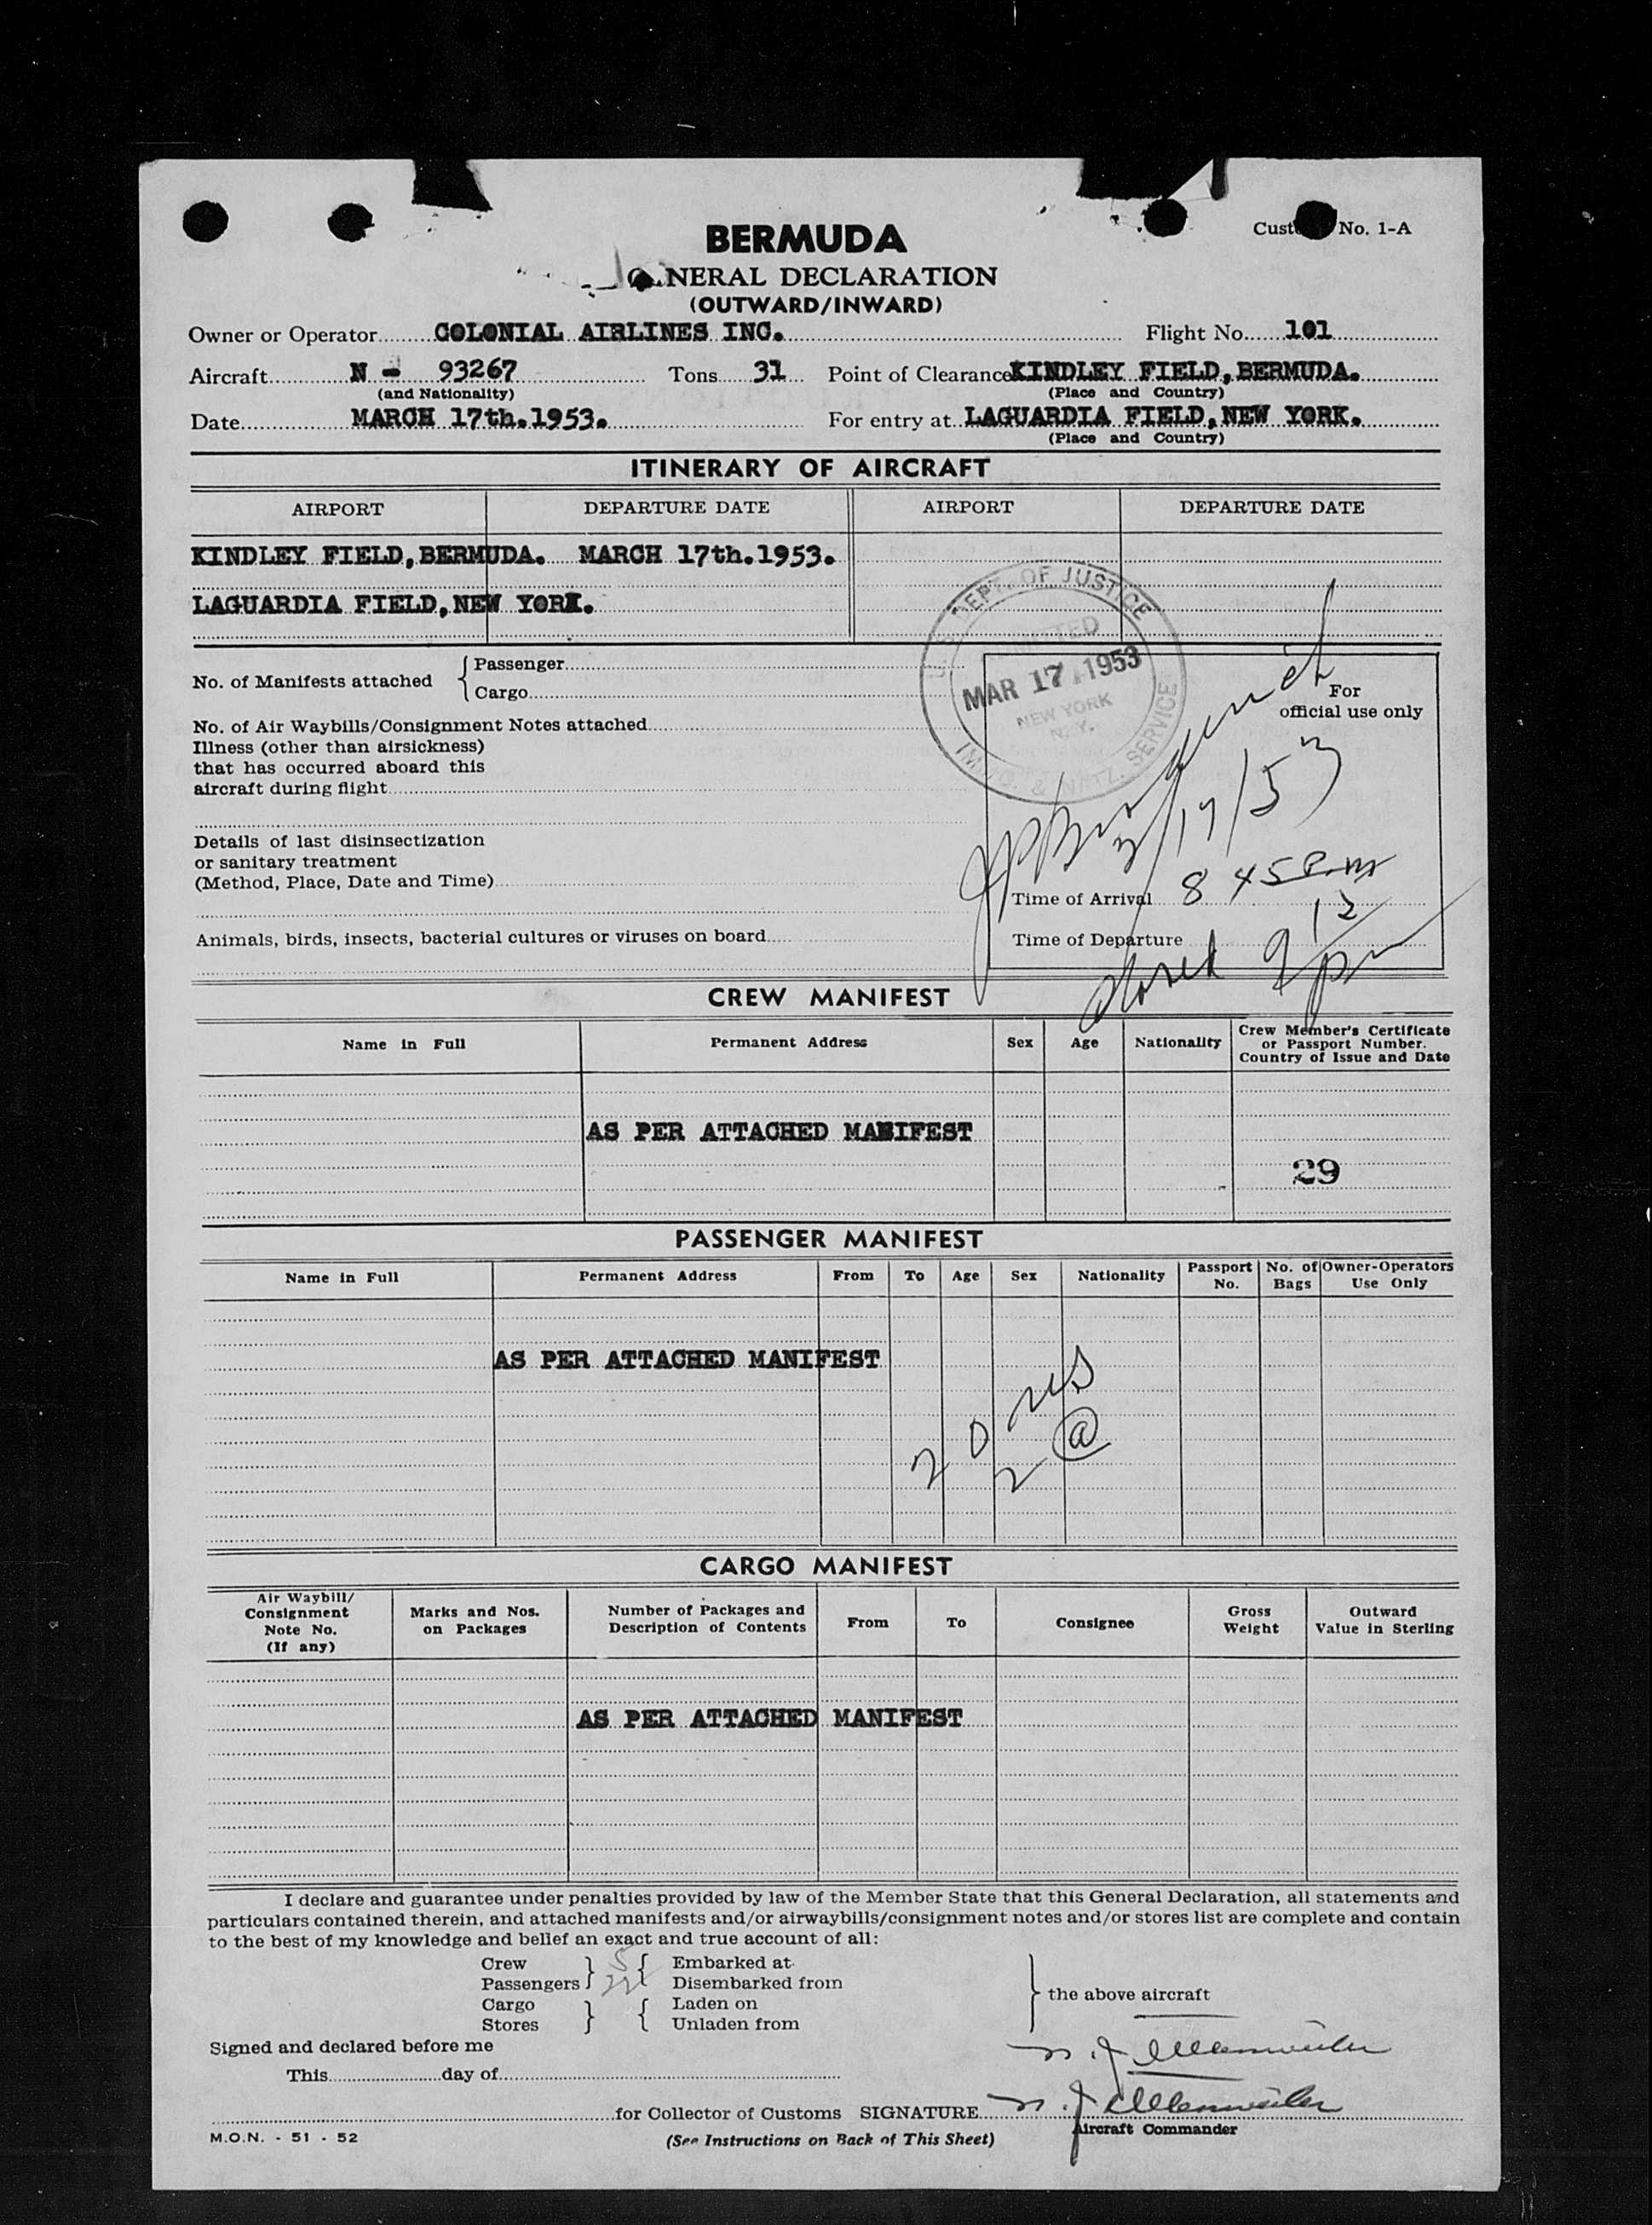 BERMUDA
Cust No. 1-A
NERAL DECLARATION
(OUTWARD/INWARD)
Owner or Operator COLONIAL AIRLINES INC. Flight No. 101
Aircraft N - 93267 Tons 31 Point of Clearance KINDLEY FIELD, BERMUDA.
(and Nationality) (Place and Country)
Date MARCH 17th.1953. For entry at LAGUARDIA FIELD, NEW YORK.
(Place and Country)
ITINERARY OF AIRCRAFT
AIRPORT DEPARTURE DATE AIRPORT DEPARTURE DATE
KINDLEY FIELD, BERMUDA. MARCH 17th.1953.
LAGUARDIA FIELD, NEW YORK.
U.S. DEPT. OF JUSTICE
ADMITTED
MAR 17 1953
NEW YORK
N.Y.
IMMIG. & NATZ. SERVICE
No. of Manifests attached { Passenger
Cargo
For
official use only
No. of Air Waybills/Consignment Notes attached
Illness (other than airsickness)
that has occurred aboard this
aircraft during flight
3/17/53
Details of last disinsectization
or sanitary treatment
(Method, Place, Date and Time)
Time of Arrival 8 45 P.m
Animals, birds, insects, bacterial cultures or viruses on board
Time of Departure
closed 9 12 pm
CREW MANIFEST
Name in Full Permanent Address Sex Age Nationality Crew Member's Certificate
or Passport Number.
Country of Issue and Date
AS PER ATTACHED MANIFEST
29
PASSENGER MANIFEST
Name in Full Permanent Address From To Age Sex Nationality Passport No. No. of Bags Owner-Operators Use Only
AS PER ATTACHED MANIFEST
20
2 @
CARGO MANIFEST
Air Waybill/ Consignment Note No. (If any) Marks and Nos. on Packages Number of Packages and Description of Contents From To Consignee Gross Weight Outward Value in Sterling
AS PER ATTACHED MANIFEST
I declare and guarantee under penalties provided by law of the Member State that this General Declaration, all statements and
particulars contained therein, and attached manifests and/or airwaybills/consignment notes and/or stores list are complete and contain
to the best of my knowledge and belief an exact and true account of all:
Crew } 5 { Embarked at
Passengers } 22 { Disembarked from
the above aircraft
Cargo } { Laden on
Stores } { Unladen from
Signed and declared before me
This day of
for Collector of Customs SIGNATURE
Aircraft Commander
M.O.N. - 51 - 52
(See Instructions on Back of This Sheet)